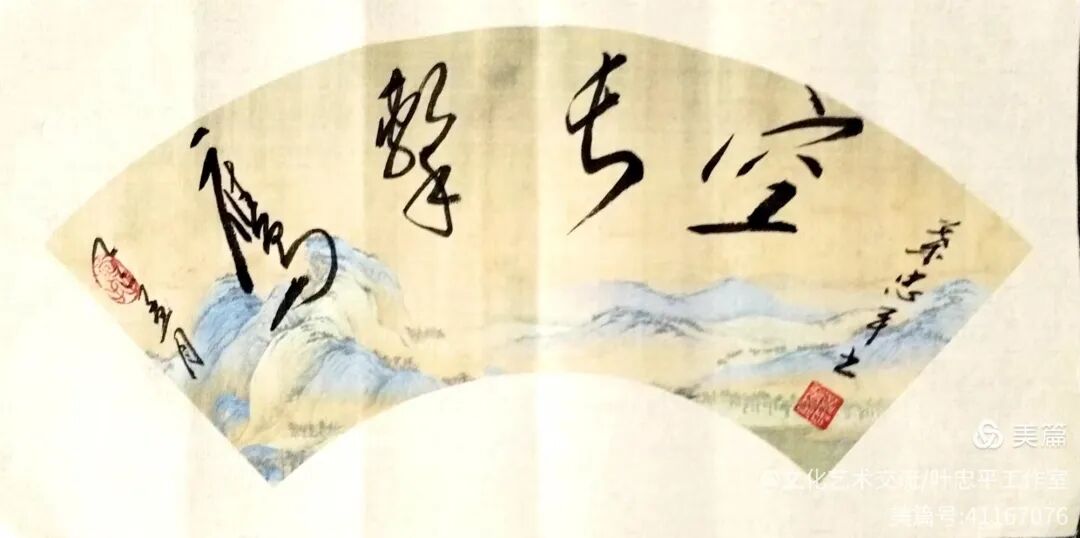 鷹擊长空
五月
葉忠平书
美篇
@文化艺术交流/叶忠平工作室
美篇号:41167076